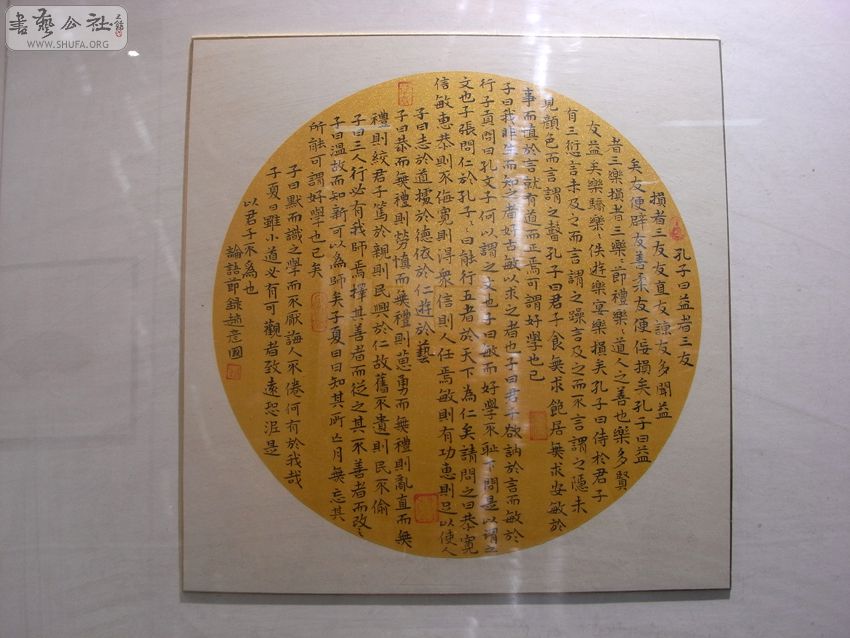 書藝公社
WWW.SHUFA.ORG
孔子曰益者三友
損者三友友直友諒友多聞益
矣友便辟友善柔友便佞損矣孔子曰益
者三樂損者三樂〻節禮樂〻道人之善也樂多賢
友益矣樂驕樂〻佚遊樂宴樂損矣孔子曰侍於君子
有三愆言未及之而言謂之躁言及之而不言謂之隱未
見顏色而言謂之瞽孔子曰君子食無求飽居無求安敏於
事而慎於言就有道而正焉可謂好學也已
子曰我非生而知之者好古敏以求之者也子曰君子欲訥於言而敏於
行子貢問曰孔文子何以謂之文也子曰敏而好學不恥下問是以謂之
文也子張問仁於孔子〻曰能行五者於天下為仁矣請問之曰恭寬
信敏惠恭則不侮寬則得眾信則人任焉敏則有功惠則足以使人
子曰志於道據於德依於仁遊於藝
子曰恭而無禮則勞慎而無禮則葸勇而無禮則亂直而無
禮則絞君子篤於親則民興於仁故舊不遺則民不偷
子曰三人行必有我師焉擇其善者而從之其不善者而改之
子曰溫故而知新可以為師矣子夏曰日知其所亡月無忘其
所能可謂好學也已矣
子曰默而識之學而不厭誨人不倦何有於我哉
子夏曰雖小道必有可觀者致遠恐泥是
以君子不為也
論語節錄趙意國